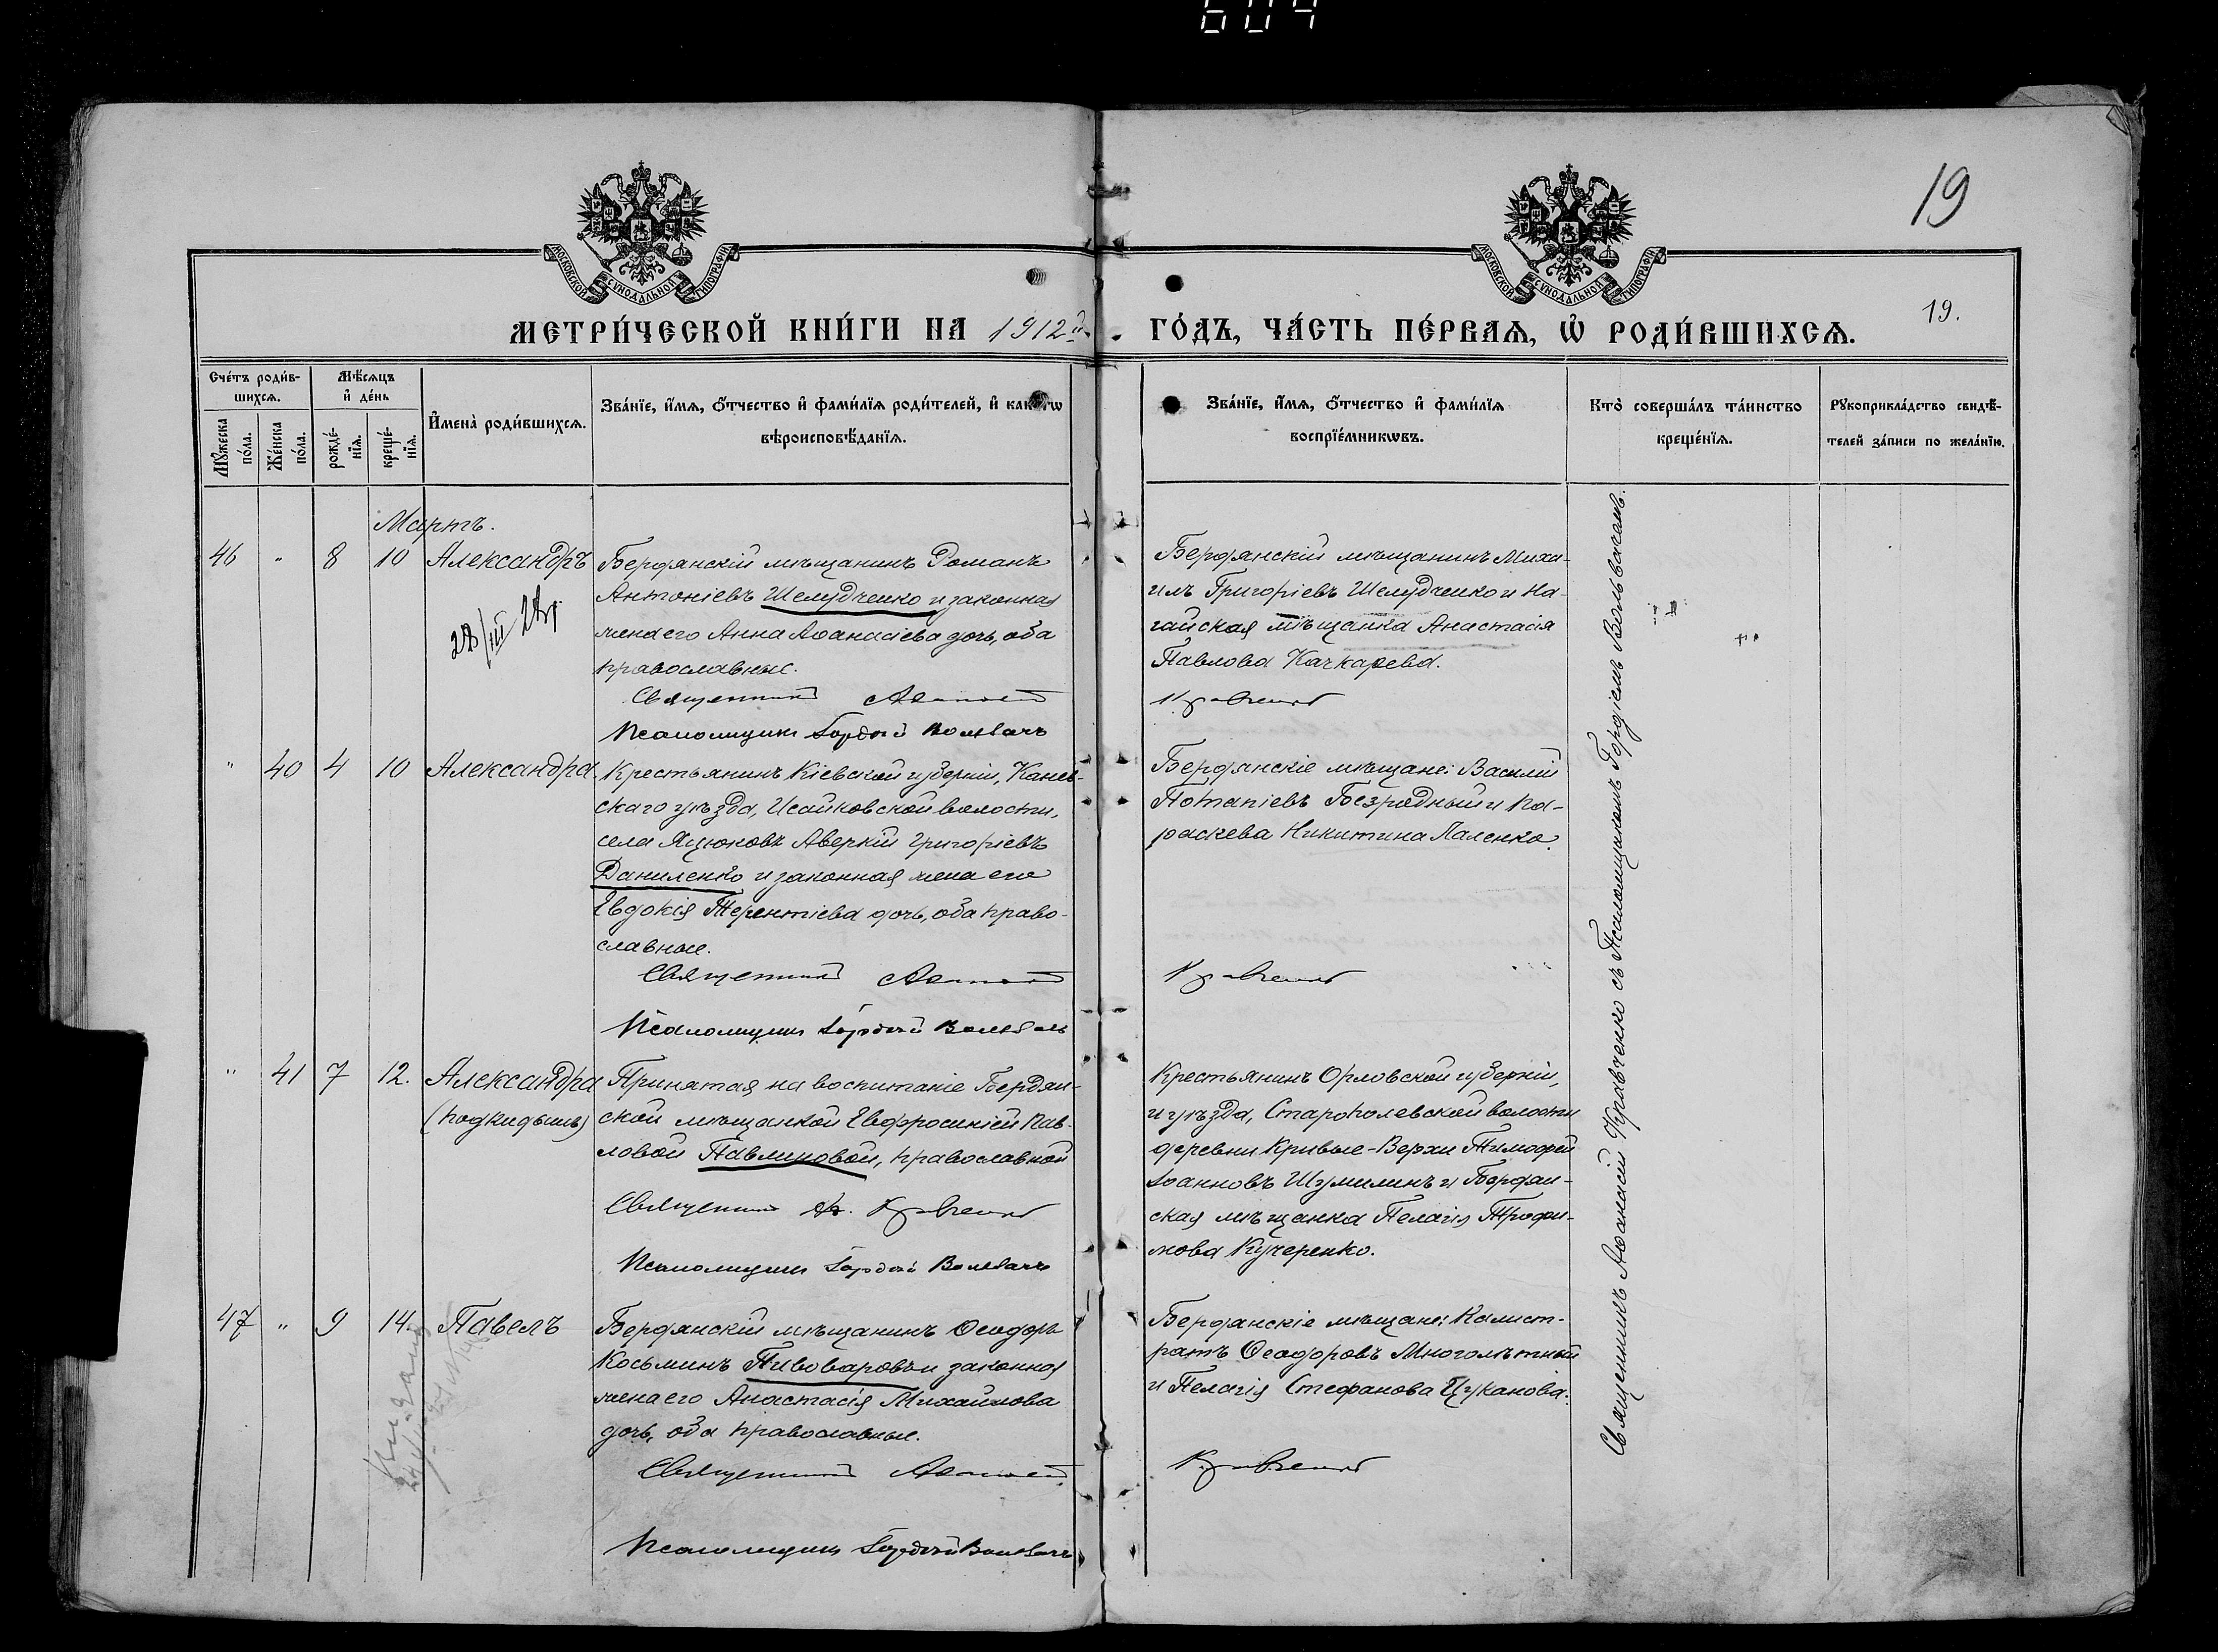 604
19
МОСКОВСКОЙ СѴНОДАЛЬНОЙ ТИПОГРАФІИ
МОСКОВСКОЙ СѴНОДАЛЬНОЙ ТИПОГРАФІИ
МЕТРИ́ЧЕСКОЙ КНИ́ГИ НА 1912й ГО́ДЪ, ЧА́СТЬ ПЕ́РВАѦ, Ѡ҆ РОДИ́ВШИХСѦ.
19.
Сче́тъ роди́в-
шихсѧ.
Мѣ́сѧцъ
и҆ де́нь
Мꙋ́жеска
по́ла.
Же́нска
по́ла.
рожде́-
нїѧ.
креще́-
нїѧ.
И҆мена̀ роди́вшихсѧ.
Зва́нїе, и҆́мѧ, ѻ҆́тчество и҆ фами́лїѧ роди́телей, и҆
вѣроисповѣ́данїѧ.
Зва́нїе, и҆́мѧ, ѻ҆́тчество и҆ фами́лїѧ
воспрїе́мникѡвъ.
Кто̀ соверша́лъ та́инство
креще́нїѧ.
Рꙋкоприкла́дство свидѣ́-
телей за́писи по жела́нїю.
Мартъ.
46 " 8 10 Александръ
28/III
Бердянскій мѣщанинъ Романъ
Антоніевъ Шелудченко и законная
жена его Анна Аѳанасіева дочь, оба
православные.
Священникъ Аѳанасій
Псаломщикъ Гордій Вольвачъ
Бердянскій мѣщанинъ Миха-
илъ Григоріевъ Шелудченко и На-
гайская мѣщанка Анастасія
Павлова Качкарева.
Кравченко
" 40 4 10 Александра
Крестьянинъ Кіевской губерніи, Канев-
скаго уѣзда, Исайковской волости,
села Яцюковъ Аверкій Григоріевъ
Даниленко и законная жена его
Евдокія Терентіева дочь, оба право-
славные.
Священникъ Аѳанасій
Псаломщикъ Гордій Вольвачъ
Бердянскіе мѣщане: Василій
Потапіевъ Безрадный и Па-
раскева Никитина Паленко.
Кравченко
" 41 7 12. Александра
(подкидышъ)
Принятая на воспитаніе Бердян-
ской мѣщанкой Евфросиніей Пав-
ловой Павлиновой, православной
Священникъ Аѳ. Кравченко
Псаломщикъ Гордій Вольвачъ
Крестьянинъ Орловской губерніи,
и уѣзда, Старополевской волости
деревни Кривые-Верхи Тимофей
Іоанновъ Шумилинъ и Бердян-
ская мѣщанка Пелагія Трофи-
мова Кучеренко.
47 " 9 14. Павелъ
Бердянскій мѣщанинъ Ѳеодоръ
Косьминъ Пивоваровъ и законная
жена его Анастасія Михаилова
дочь, оба православные.
Священникъ Аѳанасій
Псаломщикъ Гордій Вольвачъ
Бердянскіе мѣщане: Калист-
ратъ Ѳеодоровъ Многолѣтній
и Пелагія Стефанова Цуканова.
Кравченко
Священникъ Аѳанасій Кравченко съ Псаломщикомъ Гордіемъ Вольвачемъ.